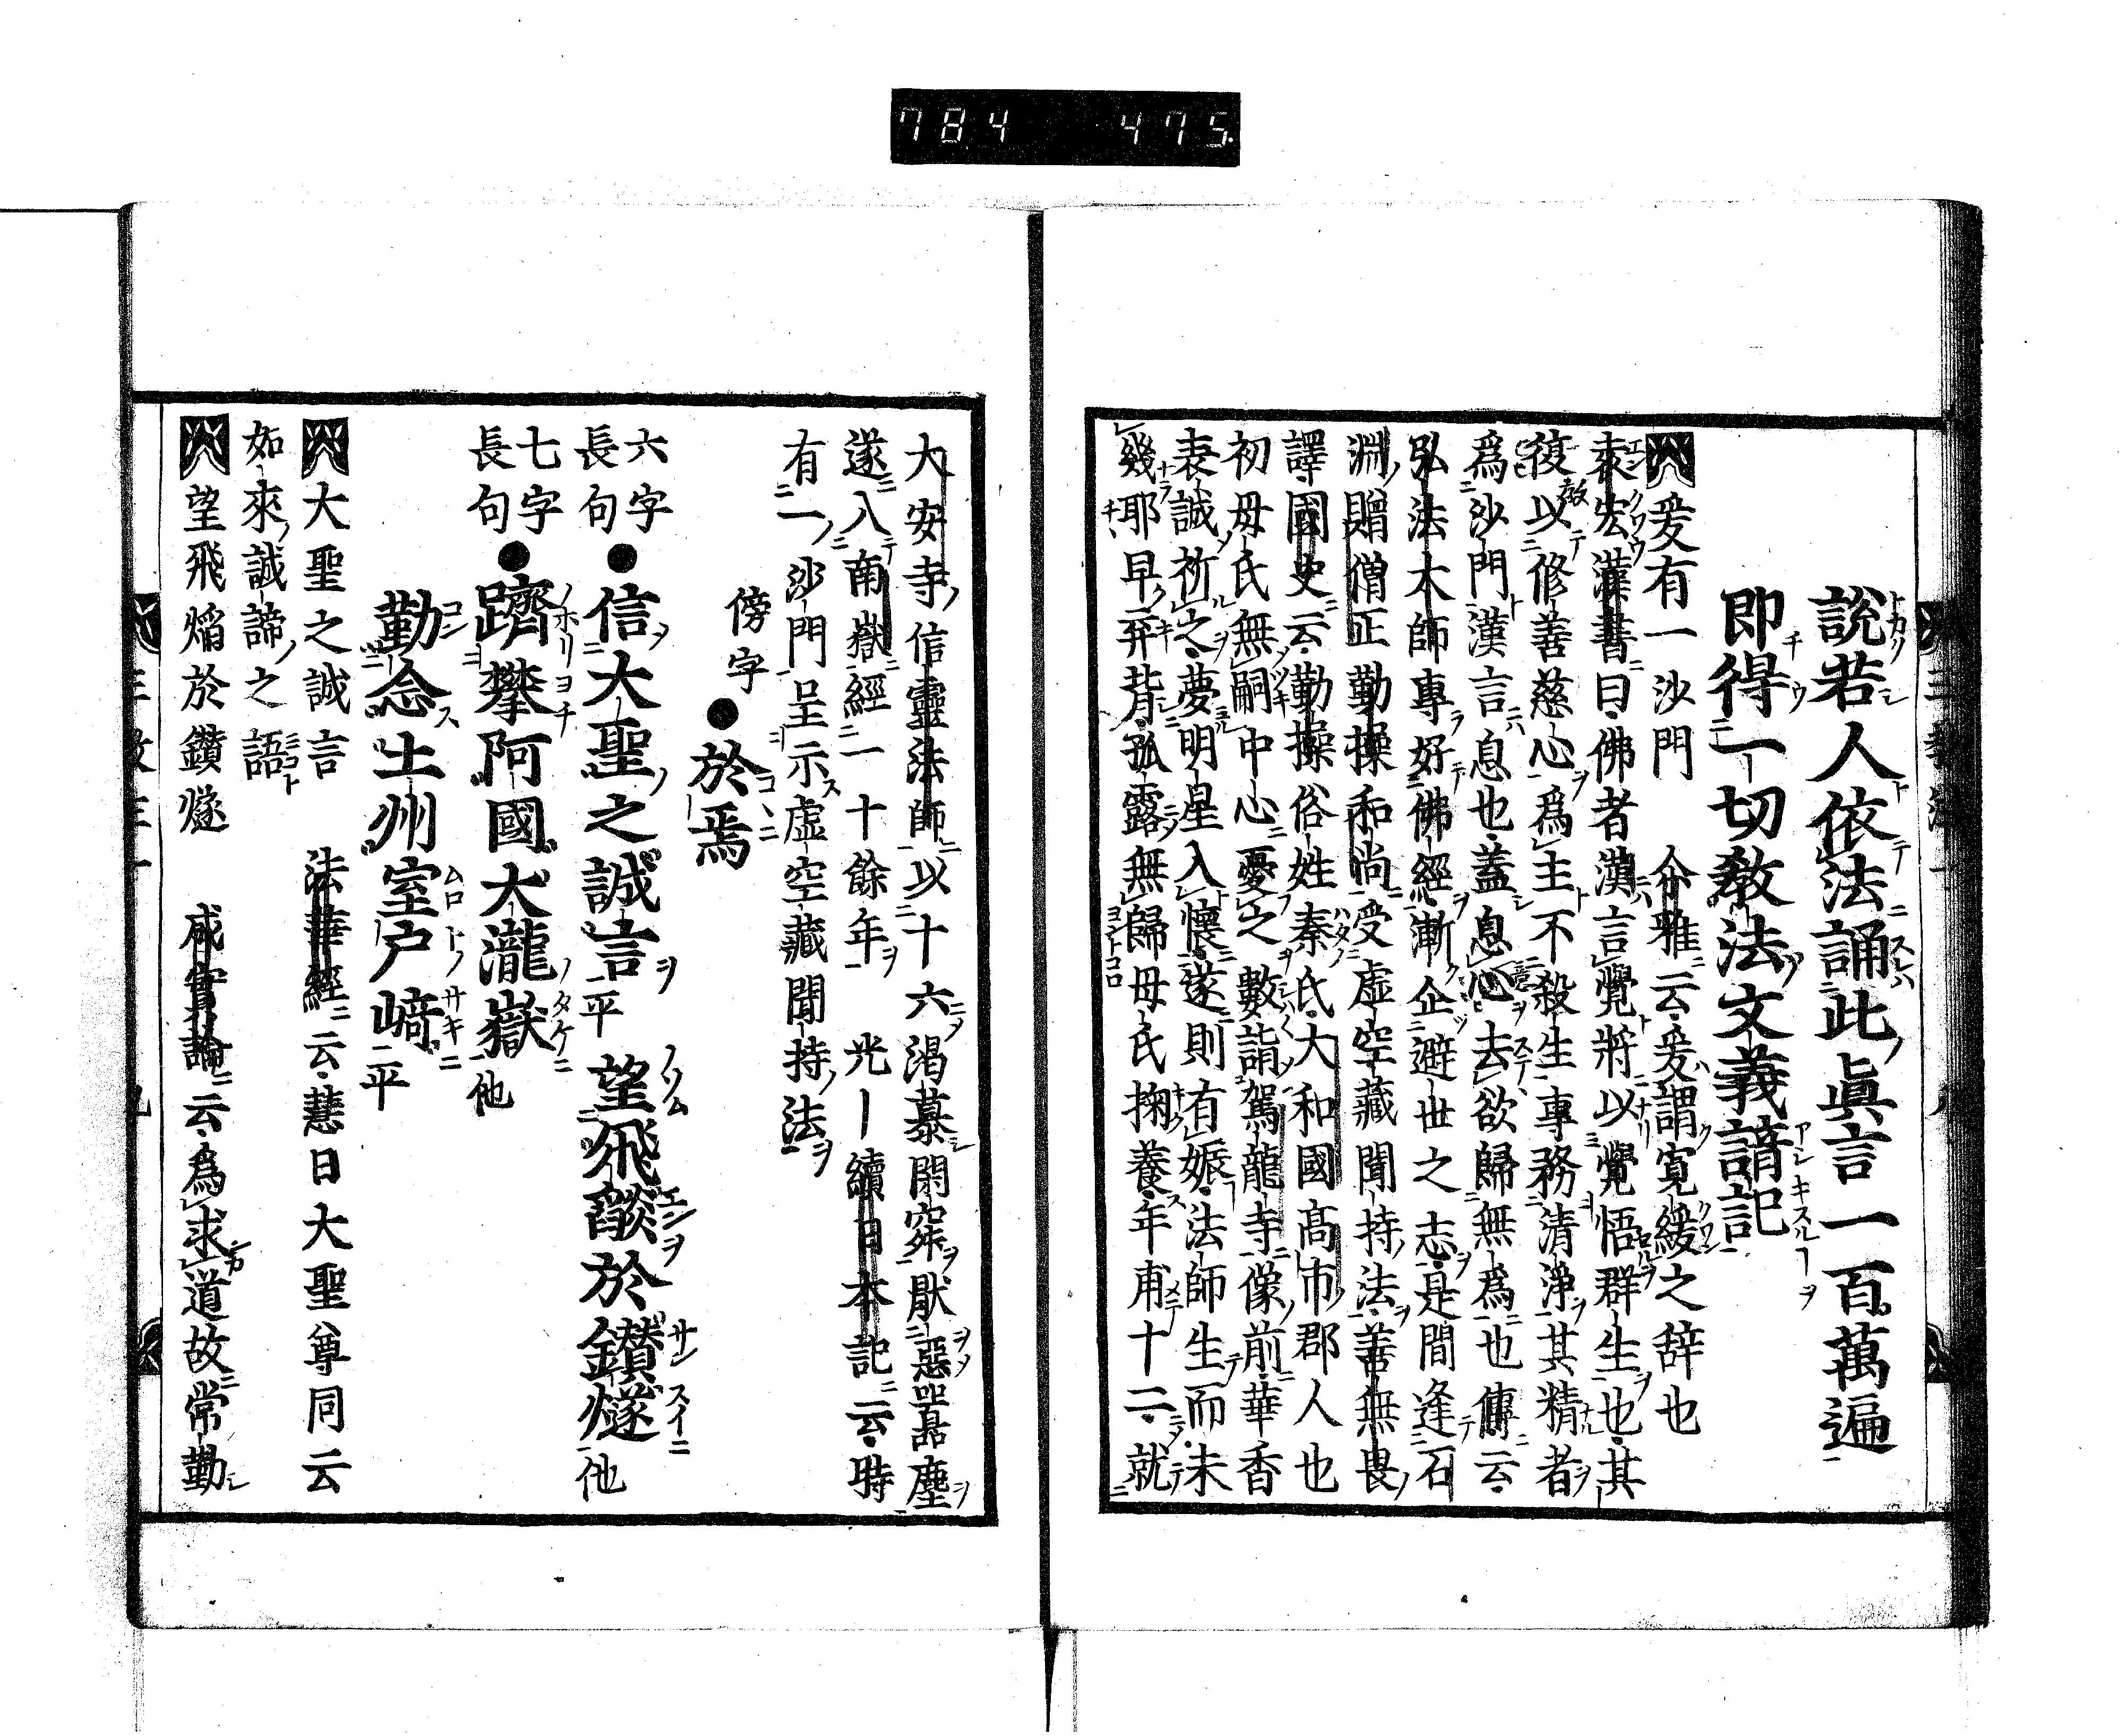 784 475
說若人依法誦此眞言一百萬遍
即得一切教法文義諳記
爰有一沙門 尒雅云爰謂寛緩之辞也
袁宏漢書曰佛者漢言覺將以覺悟群生也其
復以修善慈心爲主不殺生專務清淨其精者
爲沙門漢言息也盖息心去欲歸無爲也傳云
弘法大師專好佛經漸企避世之志是間逢石
淵贈僧正勤操和尚受虚空藏聞持法善無畏
譯國史云勤操俗姓秦氏大和國高市郡人也
初母氏無嗣中心憂之數詣駕龍寺像前華香
表誠祈之夢明星入懷遂則有娠法師生而未
幾耶早弃背孤露無歸母氏掬養年甫十二就
大安寺信靈法師以十六渇慕閑寂厭惡嚣塵
遂入南嶽經一十餘年 光丨續日本記云時
有一沙門呈示虚空藏聞持法
傍字●於焉
六字長句●信大聖之誠言平 望飛燄於鑚燧他
七字長句●躋攀阿國大瀧嶽他
勤念土州室戸﨑平
大聖之誠言 法華經云慧日大聖尊同云
如來誠諦之語
望飛焔於鑚燧 成實論云爲求道故常勤